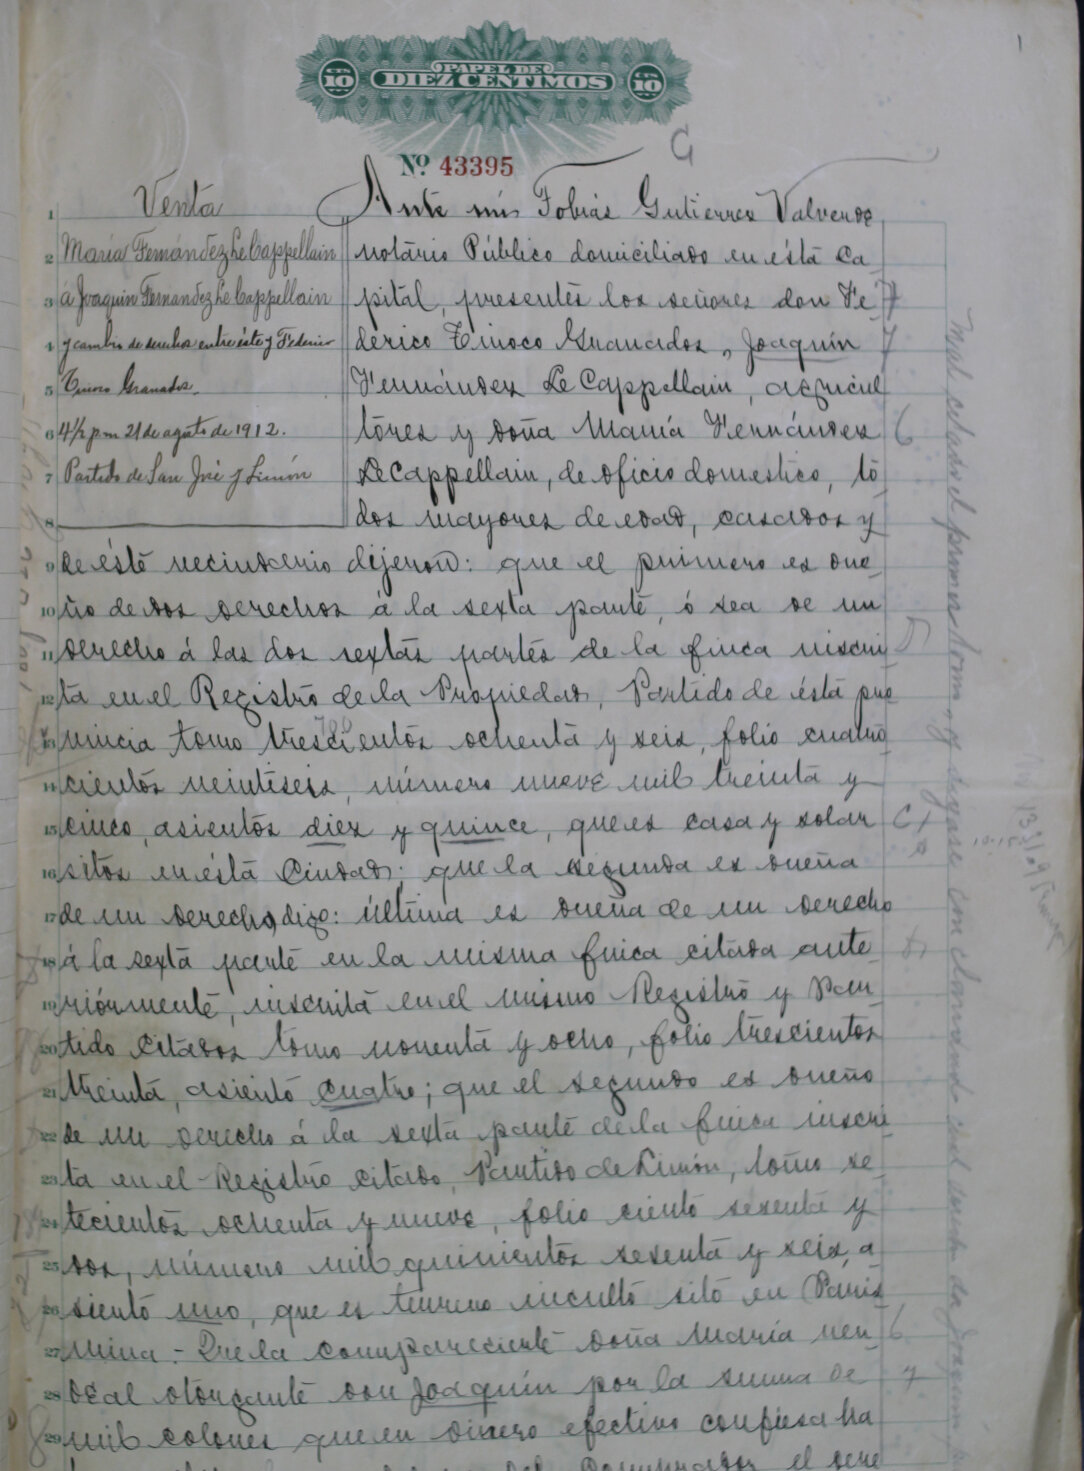 PAPEL DE
DIEZ CENTIMOS
CTS 10
CTS 10
Nº 43395
1
Venta
María Fernández Le Cappellain
á Joaquín Fernandez Le Cappellain
y cambio de derechos entre éste y Federico
Tinoco Granados.
4½ p m 21 de agosto de 1912.
Partido de San José y Limón
1 Ante mí Tobías Gutierrez Valverde
2 notario Público domiciliado en ésta ca
3 pital, presentes los señores don Fe
4 derico Tinoco Granados, Joaquín
5 Fernández Le Cappellain, agricul
6 tores y doña María Fernández
7 Le Cappellain, de oficio domestico, to
8 dos mayores de edad, casados y
9 de éste vecindario dijeron: que el primero es due
10 ño de dos derechos á la sexta parte, ó sea de un
11 derecho á las dos sextas partes de la finca inscri
12 ta en el Registro de la Propiedad, Partido de ésta pro
13 vincia tomo trescientos ochenta y seis, folio cuatro
14 cientos veintiseis, número nueve mil treinta y
15 cinco, asientos diez y quince, que es casa y solar
16 sitos en ésta Ciudad; que la segunda es dueña
17 de un derecho, digo: última es dueña de un derecho
18 á la sexta parte en la misma finca citada ante
19 riormente, inscrita en el mismo Registro y Par
20 tido citados tomo noventa y ocho, folio trescientos
21 treinta, asiento cuatro; que el segundo es dueño
22 de un derecho á la sexta parte de la finca inscri
23 ta en el Registro citado, Partido de Limón, tomo se
24 tecientos ochenta y nueve, folio ciento sesenta y
25 dos, número mil quinientos sesenta y seis, a
26 siento uno, que es terreno inculto sito en Paris
27 mina.- Que la compareciente doña María ven
28 de al otorgante don Joaquín por la suma de
29 mil colones que en dinero efectivo confiesa ha
del comprador el dere